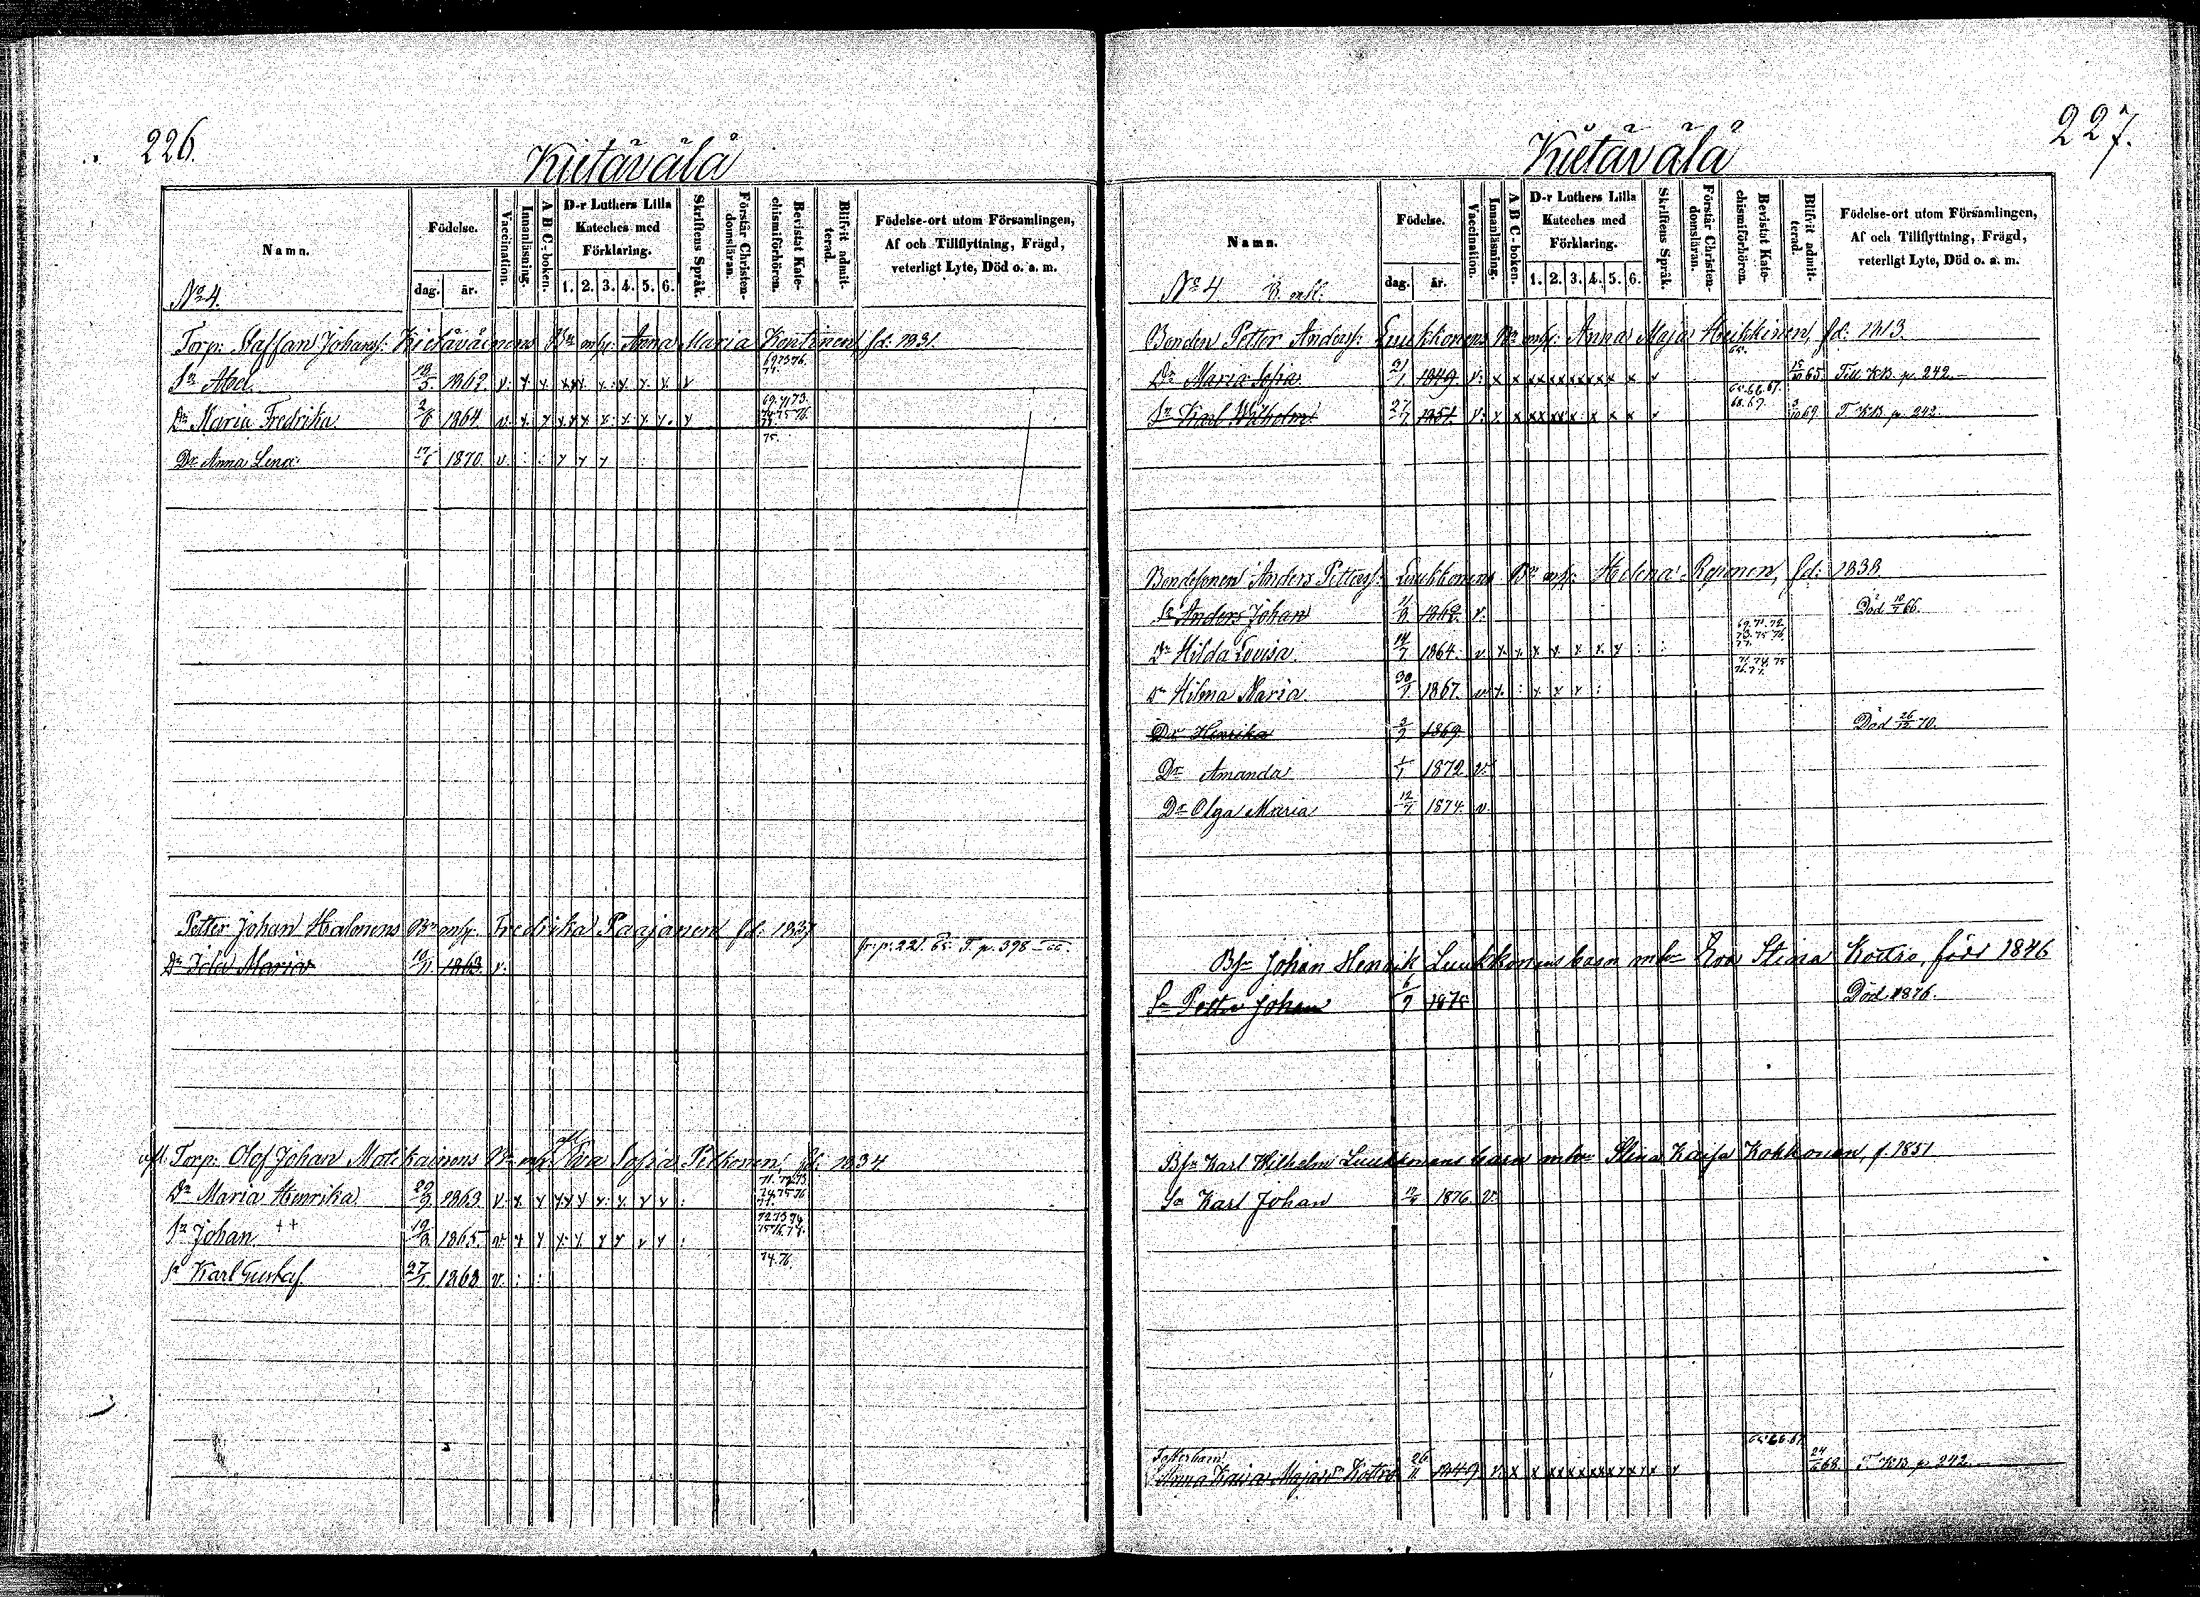 226.
Kietävälä
Namn.
Födelse.
dag.
år.
Vaccination.
Innanläsning.
A B C-boken.
D-r Luthers Lilla Kateches med Förklaring.
1. 2. 3. 4. 5. 6.
Skriftens Språk.
Förstår Christendomsläran.
Bevistat Katechismiförhören.
Blifvit admitterad.
Födelse-ort utom Församlingen, Af och Tillflyttning, Frägd, veterligt Lyte, Död o. a. m.
No 4.
Torp: Staffan Johans: Kietäväinens Bn m hu: Anna Maria Kontinen fd: 1831.
Sn Abel 13/5 1862 v.
Dr Maria Fredrika 2/6 1864. v.
Dr Anna Lena 17/6 1870. v.
Petter Johan Halonens Bn m hu. Fredrika Paajanen fd: 1837
Dr Ida Maria 10/11 1863. v. fr: p: 221. 65. T. p. 398 66.
Torp: Olof Johan Matikainens Bn m hu Eva Sofia Pitkonen, fd: 1834
Dr Maria Henrika 20/9 1863 v.
Sn Johan ++ 19/8 1865. v.
Sn Karl Gustaf. 27/1 1868 v. 74.76.
227.
Kietävälä
Namn.
Födelse.
dag.
år.
Vaccination.
Innanläsning.
A B C-boken.
D-r Luthers Lilla Kateches med Förklaring.
1. 2. 3. 4. 5. 6.
Skriftens Språk.
Förstår Christendomsläran.
Bevistat Katechismiförhören.
Blifvit admitterad.
Födelse-ort utom Församlingen, Af och Tillflyttning, Frägd, veterligt Lyte, Död o. a. m.
No 4
Bonden Petter Anders: Luukkonens Bn m hu: Anna Maja Heikkinen, fd: 1813.
Dr Maria Sofia 21/1 1849 v. 65. 15/10 65. Till KB. p. 242.
Sn Karl Wilhelm 27/7 1851. v. 65.66.67. 68.69. 3/10 69. T. KB p. 242.
Bondesonen Anders Petters: Luukkonens Bn m hu: Helena Roinen, fd: 1838.
Sn Anders Johan 1862. v. Död 10/7 66.
Dr Hilda Lovisa 14/7 1864. v. 69.71.72. 73.75 76. 77.
Dr Hilma Maria 30/1 1867. v. 71.74.75 76.77.
Dr Henrika 2/7 1869. Död 26/12 70.
Dr Amanda 1/1 1872 v.
Dr Olga Maria 12/7 1874. v.
Bsn Johan Henrik Luukkonens barn m hu Eva Stina Kottro, född 1846
Sn Petter Johan 6/9 1875 Död 1876.
Bsn Karl Wilhelm Luukkonens barn m hu Stina Kaisa Kokkonen, f. 1851
Sn Karl Johan 1876. v.
Fosterbarn:
Anna Kaisa Majasd Kottro 26/11 1849 65 66 67 24/6 68. T. KB. p 242